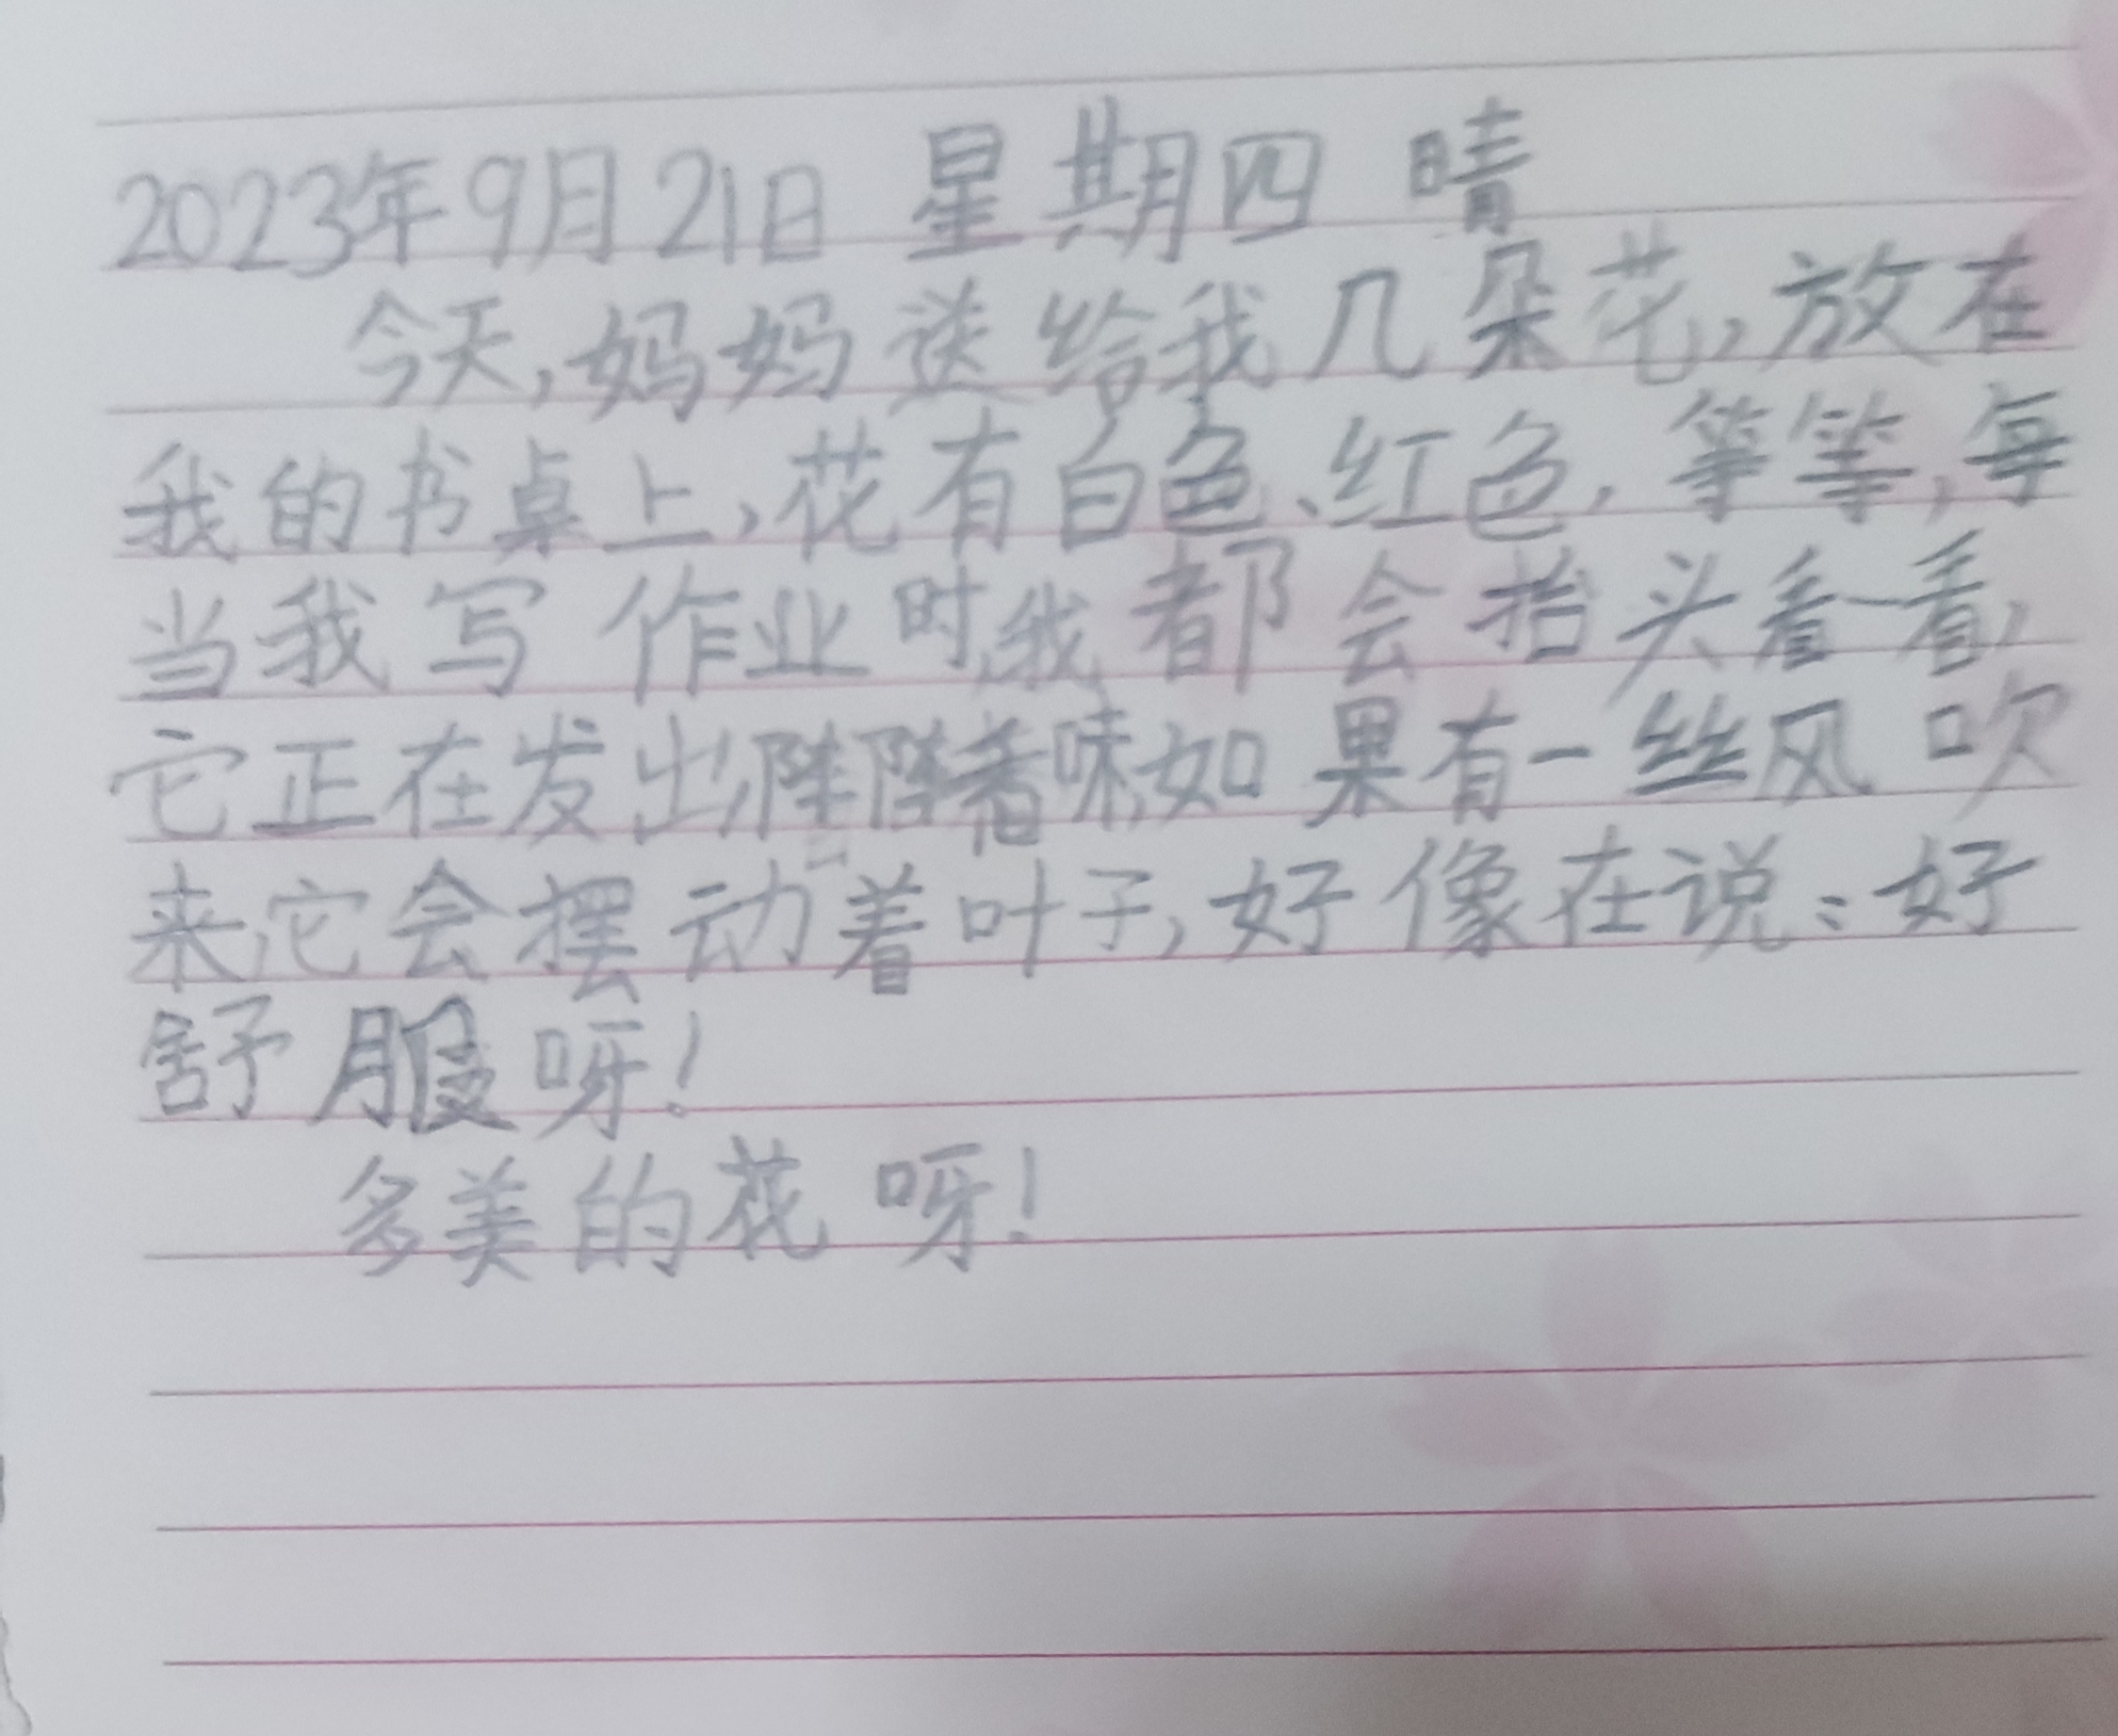 2023年9月21日 星期四 晴
今天,妈妈送给我几朵花,放在
我的书桌上,花有白色、红色,等等,每
当我写作业时,我都会抬头看一看,
它正在发出阵阵香味,如果有一丝风吹
来,它会摆动着叶子,好像在说:好
舒服呀!
多美的花呀!